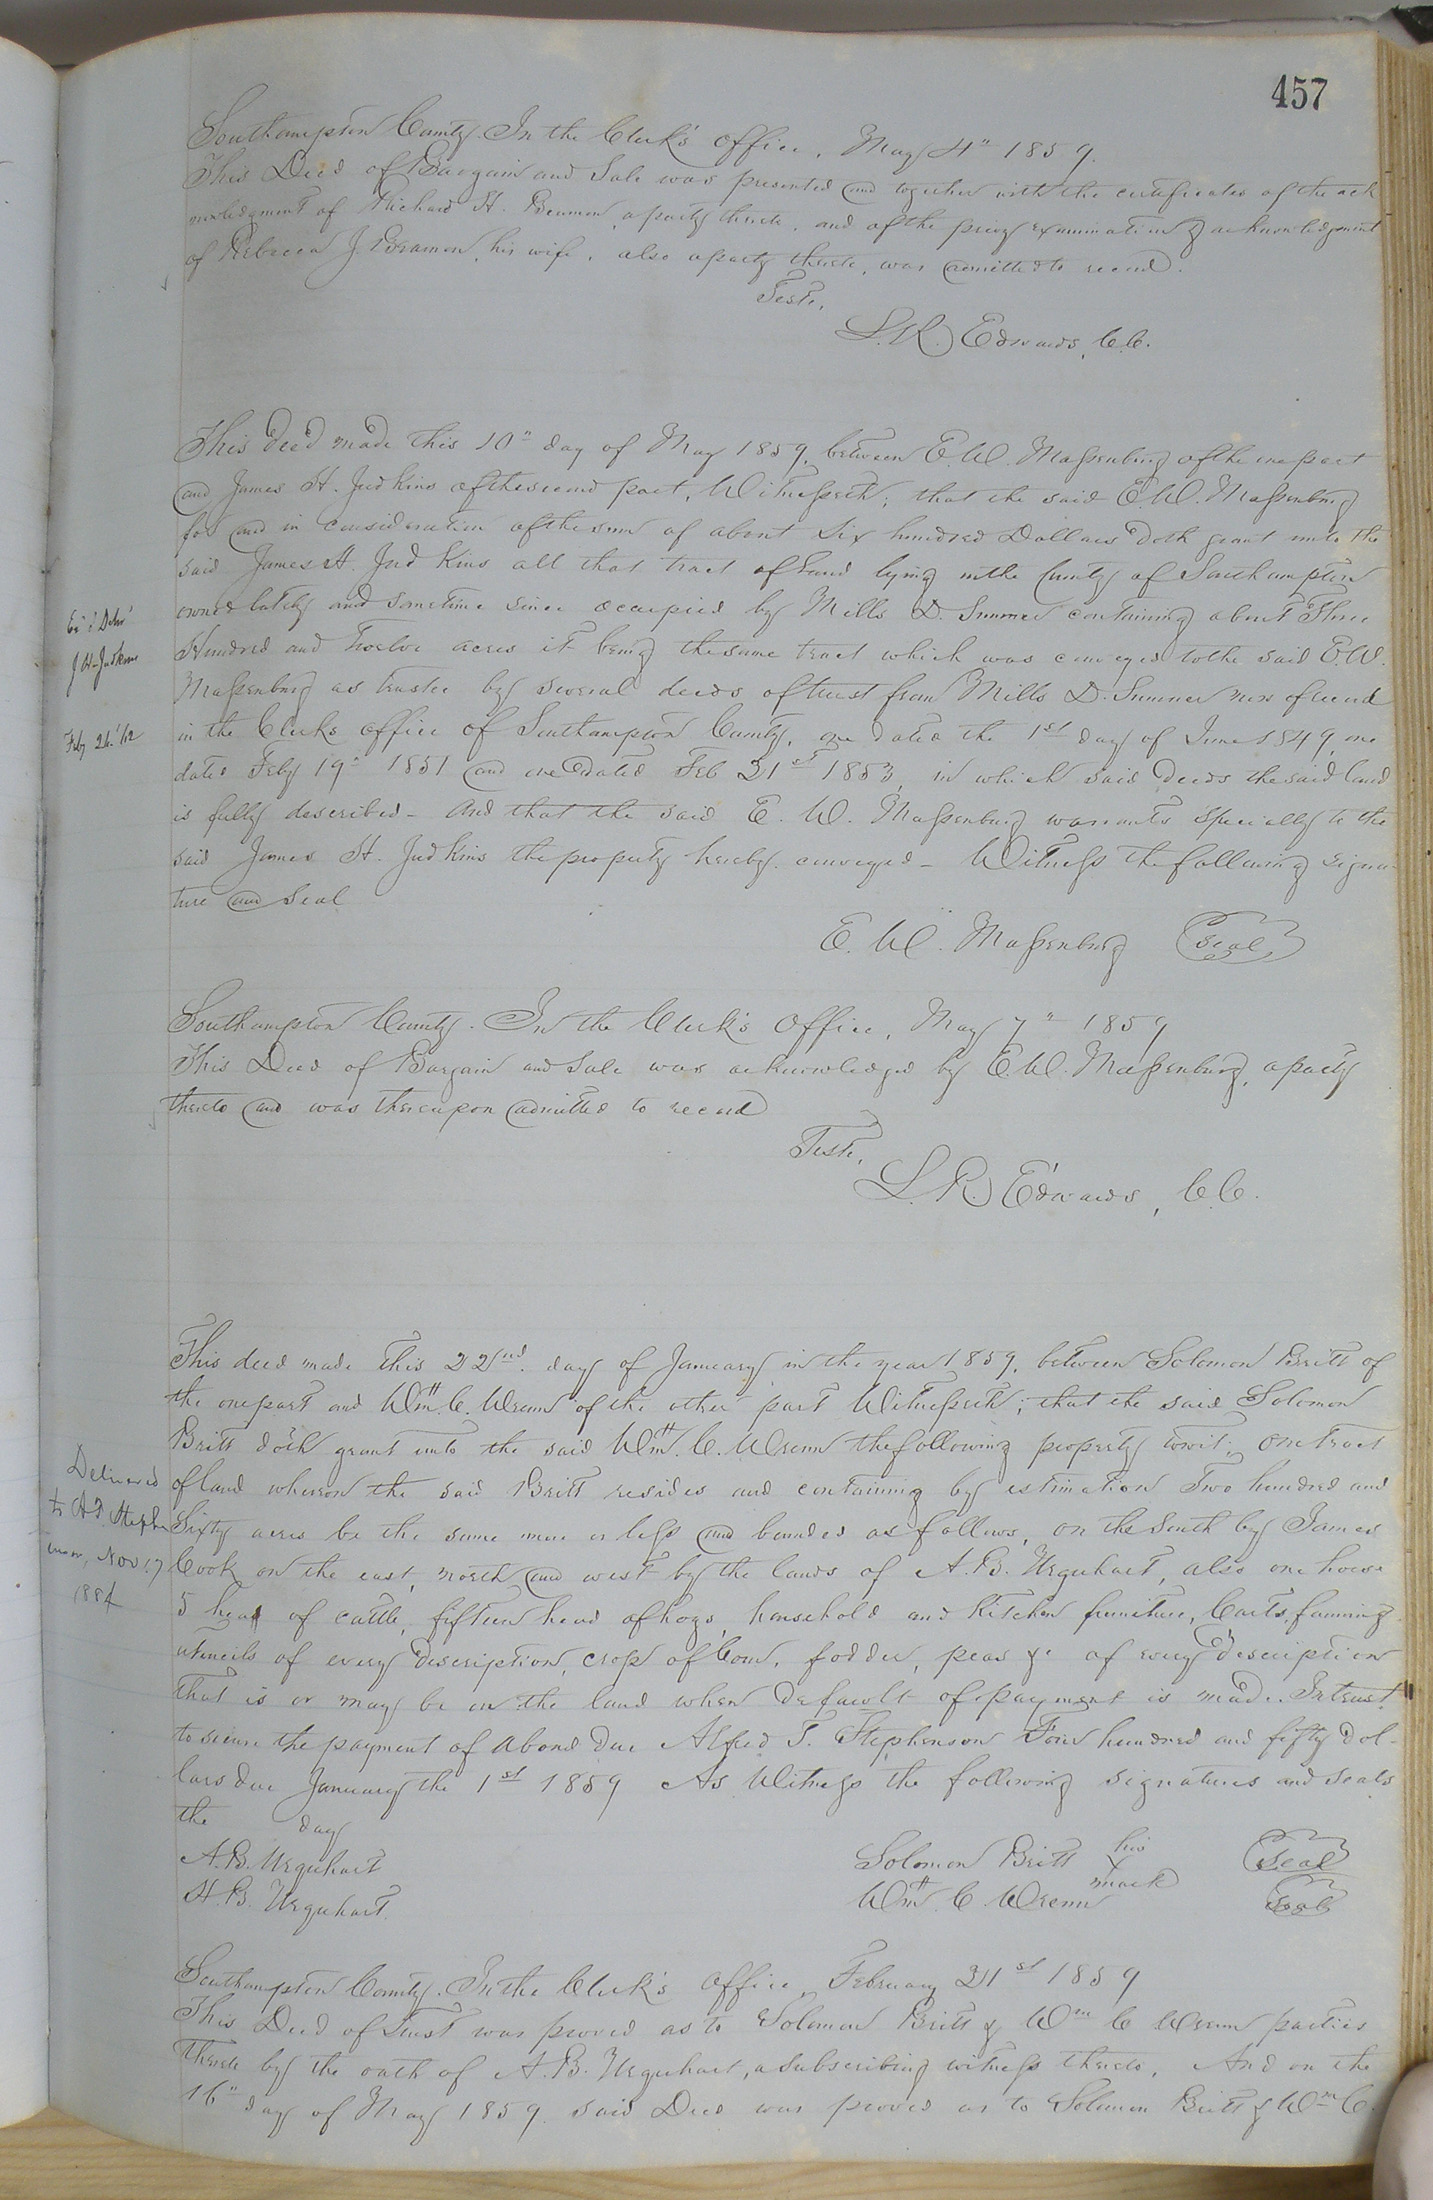 457
Southampton County. In the Clerk's Office, May 4" 1859.
This Deed of Bargain and Sale was presented and together with the certificates of the ack
nowledgment of Richard H. Beamon, a party thereto, and of the privy examination & acknowledgment
of Rebecca J. Beamon, his wife, also a party thereto, was admitted to record.
Teste,
L. R. Edwards, C.C.
This deed made this 10" day of May 1859, between E. W. Maßenburg of the one part
and James H. Judkins of the second part, Witneßeth; that the said E. W. Maßenburg
for and in consideration of the sum of about Six hundred Dollars doth grant unto the
said James H. Judkins all that tract of Land lying in the County of Southampton
owned lately and sometime since occupied by Mills D. Sumner containing about Three
Hundred and Twelve acres it being the same tract which was conveyed to the said E. W.
Maßenburg as trustee by several deeds of trust from Mills D. Sumner now of record
in the Clerks office of Southampton County, one dated the 1st day of June 1849, one
dated Feby 19" 1851 and one dated Feb 21st 1853, in which said deeds the said land
is fully described - And that the said E. W. Maßenburg warrants Specially to the
said James H. Judkins the property hereby conveyed - Witneß the following signa-
ture and Seal
E. W. Maßenburg Seal
J H Judkins
Feby 26 '/12
Southampton County. In the Clerk's Office, May 7" 1859
This Deed of Bargain and Sale was acknowledged by E. W. Maßenburg, a party
thereto and was thereupon admitted to record
Teste,
L. R. Edwards, C.C.
This deed made this 22nd. day of January in the year 1859, between Solomon Britt of
the one part and Wm. C. Wrenn of the other part Witneßeth; that the said Solomon
Britt doth grant unto the said Wm. C. Wrenn the following property towit; One tract
of land whereon the said Britt resides and containing by estimation Two hundred and
Sixty acres be the same more or leß and bounded as follows, on the South by James
Cook on the east, north and west by the lands of A. B. Urquhart, also one horse
5 head of cattle, fifteen head of hogs, household and Kitchen furniture, Carts, farming
utencils of every Description, crop of Corn, fodder, peas &c of every Description
that is or may be on the land when default of payment is made. In trust
to secure the payment of a bond due Alfred T. Stephenson Four hundred and fifty dol-
lars due January the 1st 1859 As Witneß the following signatures and seals
the day
A. B. Urquhart Solomon Britt his X mark Seal
H. B. Urquhart. Wm. C. Wrenn Seal
Delivered
to A. T. Stephe
nson, Nov. 17
1884
Southampton County. In the Clerk's Office, February 21st 1859
This Deed of Trust was proved as to Solomon Britt & Wm C Wrenn parties
thereto by the oath of A. B. Urquhart, a subscribing witneß thereto, And on the
16" day of May 1859 said Deed was proved as to Solomon Britt & Wm C.